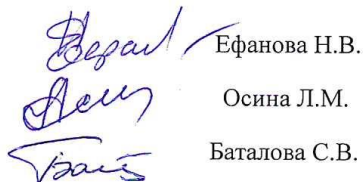 Ефанова Н.В.
Осина Л.М.
Баталова С.В.